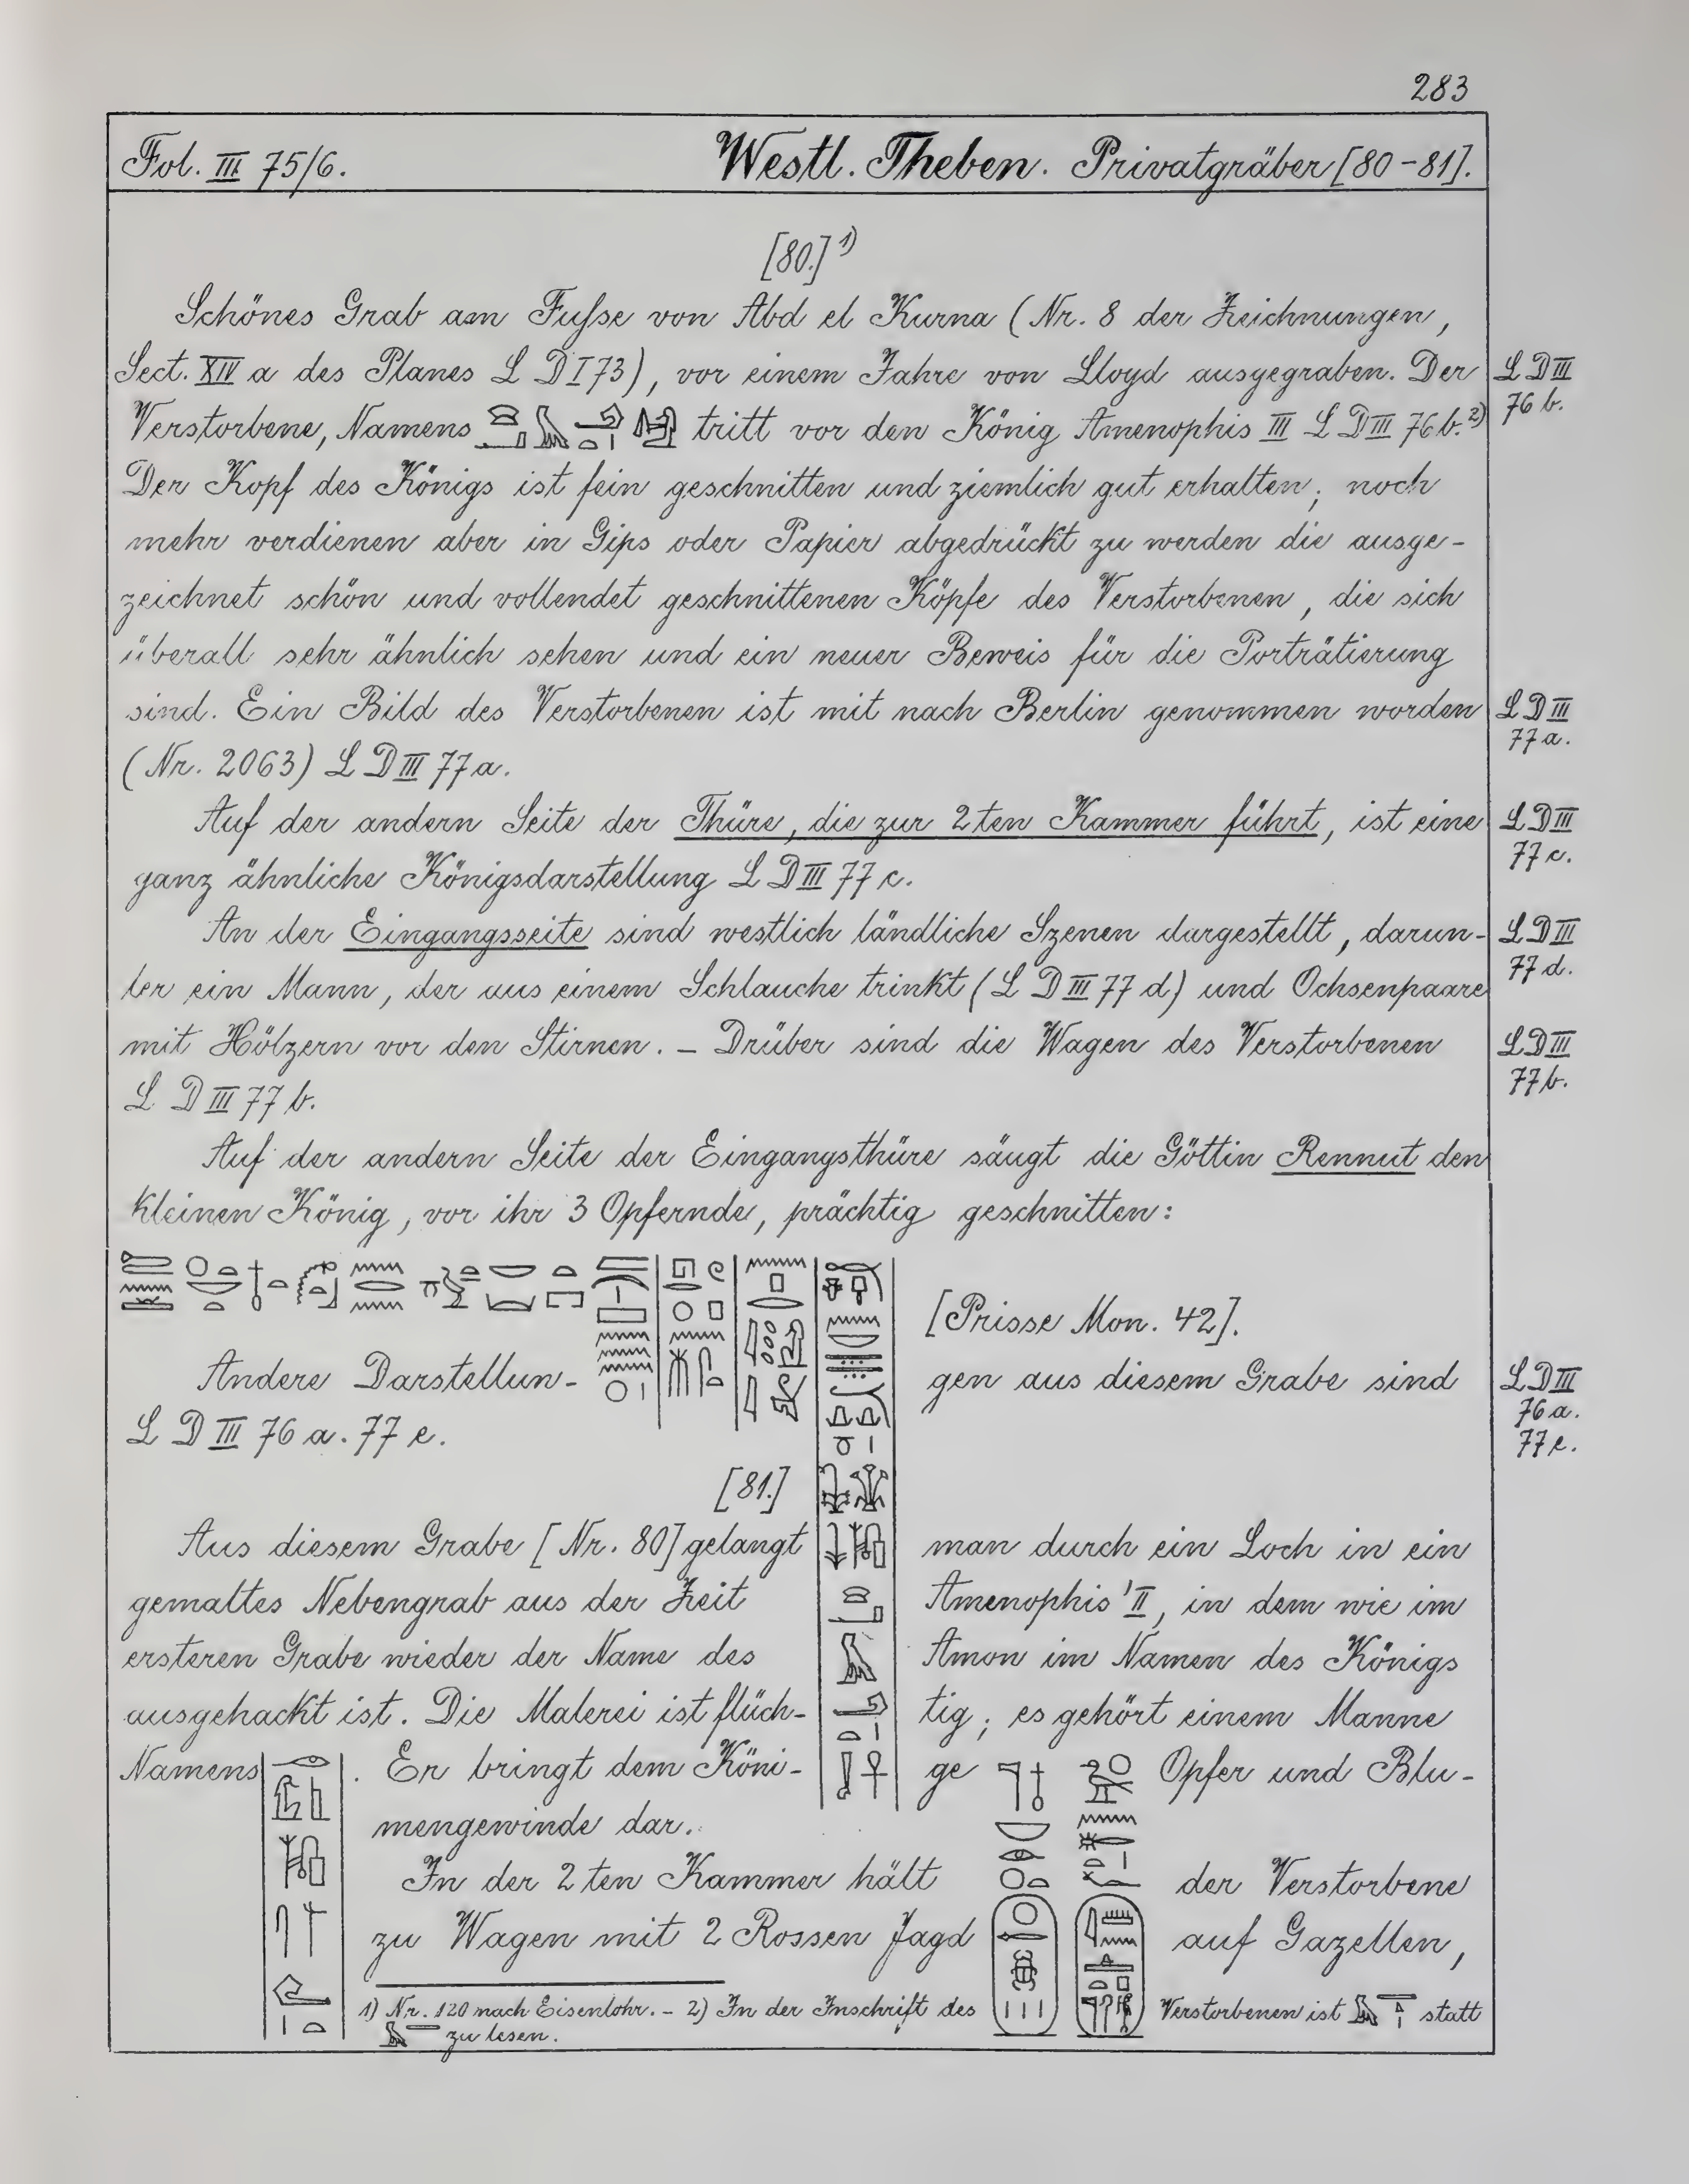 283
Fol. III 75/6. Westl. Theben. Privatgräber [80-81].
[80.] 1)
Schönes Grab am Fuſse von Abd el Kurna (Nr. 8 der Zeichnungen,
Sect. XIV a des Planes L D I 73), vor einem Jahre von Lloyd ausgegraben. Der L D III
76 b.
Verstorbene, Namens tritt vor den König Amenophis III L D III 76 b. 2)
Der Kopf des Königs ist fein geschnitten und ziemlich gut erhalten; noch
mehr verdienen aber in Gips oder Papier abgedrückt zu werden die ausge-
zeichnet schön und vollendet geschnittenen Köpfe des Verstorbenen, die sich
überall sehr ähnlich sehen und ein neuer Beweis für die Porträtierung
sind. Ein Bild des Verstorbenen ist mit nach Berlin genommen worden L D III
77 a.
(Nr. 2063) L D III 77 a.
Auf der andern Seite der Thüre, die zur 2ten Kammer führt, ist eine L D III
77 c.
ganz ähnliche Königsdarstellung L D III 77 c.
An der Eingangsseite sind westlich ländliche Szenen dargestellt, darun- L D III
77 d.
ter ein Mann, der aus einem Schlauche trinkt (L D III 77 d) und Ochsenpaare
mit Hölzern vor den Stirnen. – Drüber sind die Wagen des Verstorbenen L D III
77 b.
L D III 77 b.
Auf der andern Seite der Eingangsthüre säugt die Göttin Rennut den
kleinen König, vor ihr 3 Opfernde, prächtig geschnitten:
[Prisse Mon. 42].
Andere Darstellun- gen aus diesem Grabe sind L D III
76 a.
77 e.
L D III 76 a. 77 e.
[81.]
Aus diesem Grabe [Nr. 80] gelangt man durch ein Loch in ein
gemaltes Nebengrab aus der Zeit Amenophis' II, in dem wie im
ersteren Grabe wieder der Name des Amon im Namen des Königs
ausgehackt ist. Die Malerei ist flüch- tig; es gehört einem Manne
Namens . Er bringt dem Köni- ge Opfer und Blu-
mengewinde dar.
In der 2ten Kammer hält der Verstorbene
zu Wagen mit 2 Rossen Jagd auf Gazellen,
1) Nr. 120 nach Eisenlohr. – 2) In der Inschrift des Verstorbenen ist statt
zu lesen.